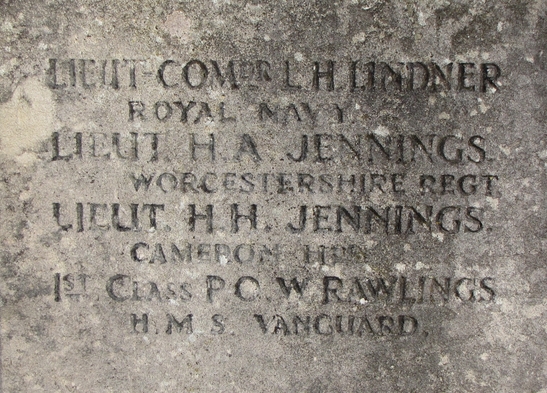 LIEUT-COMDR L.H. LINDNER
ROYAL NAVY
LIEUT. H.A. JENNINGS.
WORCESTERSHIRE REGT
LIEUT. H.H. JENNINGS.
CAMERON
1ST CLASS P.O. W RAWLINGS
H.M.S. VANGUARD.